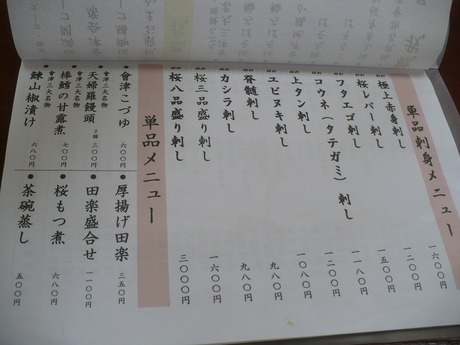 単品刺身メニュー
極上赤身刺し 一六〇〇円
桜レバー刺し 一二〇〇円
フタエゴ刺し 一五〇〇円
コウネ(タテガミ)刺し 一一八〇円
上タン刺し 一二〇〇円
ユビヌキ刺し 一〇八〇円
脊髄刺し 九八〇円
カシラ刺し 九八〇円
桜三品盛り刺し 一六〇〇円
桜八品盛り刺し 三〇〇〇円
単品メニュー
會津こづゆ 六〇〇円
會津三大名物
天婦羅饅頭 2個 三〇〇円
會津三大名物
棒鱈の甘露煮 七〇〇円
會津三大名物
鰊山椒漬け 六八〇円
厚揚げ田楽 三五〇円
田楽盛合せ 一一〇〇円
桜もつ煮 六八〇円
茶碗蒸し 五〇〇円